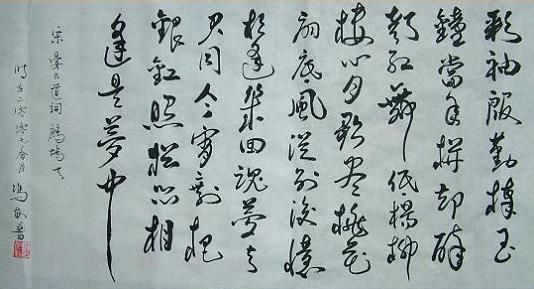 彩袖殷勤捧玉
鐘當年拚却醉
顏紅舞低楊柳
樓心月歌盡桃花
扇底風從別後憶
相逢幾回魂夢与
君同今宵剩把
銀釭照猶恐相
逢是夢中
宋晏几道詞鷓鴣天
時在二零零七春月馮